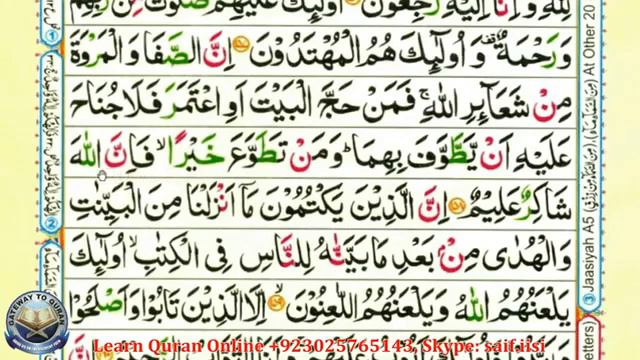 لِلّٰهِ وَاِنَّاۤ اِلَيْهِ رٰجِعُوْنَ اُولٰٓئِكَ عَلَيْهِمْ صَلَوٰتٌ مِّنْ رَّبِّهِمْ
وَرَحْمَةٌ وَاُولٰٓئِكَ هُمُ الْمُهْتَدُوْنَ اِنَّ الصَّفَا وَالْمَرْوَةَ
مِنْ شَعَآئِرِ اللّٰهِ فَمَنْ حَجَّ الْبَيْتَ اَوِ اعْتَمَرَ فَلَا جُنَاحَ
عَلَيْهِ اَنْ يَّطَّوَّفَ بِهِمَا وَمَنْ تَطَوَّعَ خَيْرًا فَاِنَّ اللّٰهَ
شَاكِرٌ عَلِيْمٌ اِنَّ الَّذِيْنَ يَكْتُمُوْنَ مَاۤ اَنْزَلْنَا مِنَ الْبَيِّنٰتِ
وَالْهُدٰى مِنْۢ بَعْدِ مَا بَيَّنّٰهُ لِلنَّاسِ فِي الْكِتٰبِ اُولٰٓئِكَ
يَلْعَنُهُمُ اللّٰهُ وَيَلْعَنُهُمُ اللّٰعِنُوْنَ اِلَّا الَّذِيْنَ تَابُوْا وَاَصْلَحُوْا
Jaasiyah A5
At Other 20
GATEWAY TO QURAN
Learn Quran Online +923025765143, Skype: saif.iisi